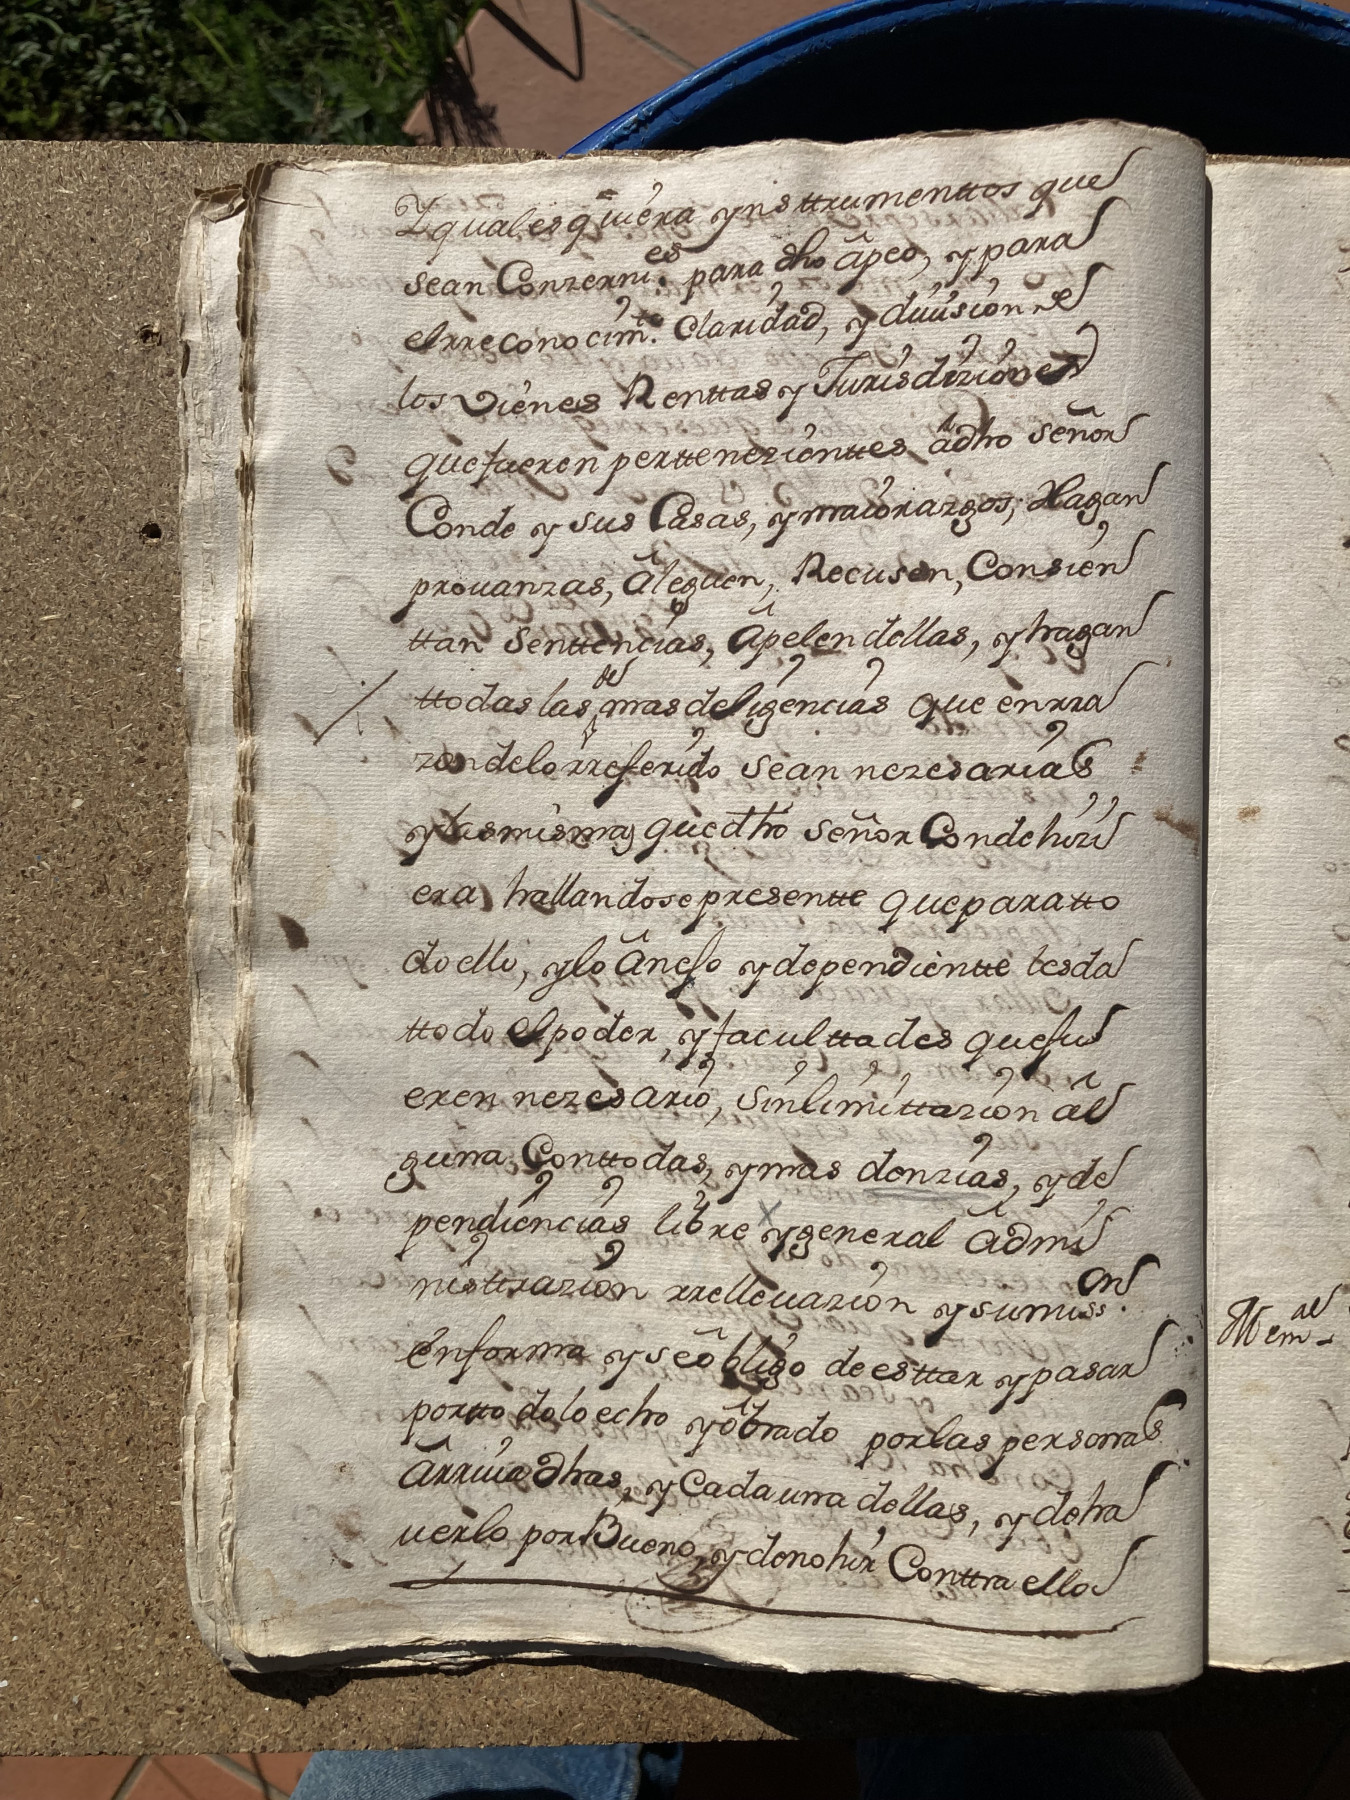 Y qualesquiera ynsttrumenttos que
sean Conzerni.es para dho âpeo, y para
el rreconocim.to Claridad, y diuision de
los vienes Renttas y Jurisdiziones
que fueren perttenezienttes âdho señor
Conde y sus Casas, y maiorazgos, Hagan
prouanzas, âleguen, Recusen, Consien
ttan senttencias, âpelen dellas, y hagan
ttodas las de mas deligencias que en rra
zon delo rreferido sean nezesarias
y las mismas que dho señor Conde hizi
era hallandose presentte que para tto
do ello, y lo ânejo y dependientte les da
ttodo el poder, y facultades que fu
eren nezesario, sin limittazion âl
guna Con ttodas, y mas denzias, y de
pendiencias libre y general âdmi
nisttrazion rrelleuazion y sumiss.on
en forma y se ôbligo de esttar y pasar
por tto do lo echo y ôbrado por las personas
ârriua dhas, y Cada una dellas, y de ha
uerlo por Bueno, y de no hir Conttra ello
Mem.al